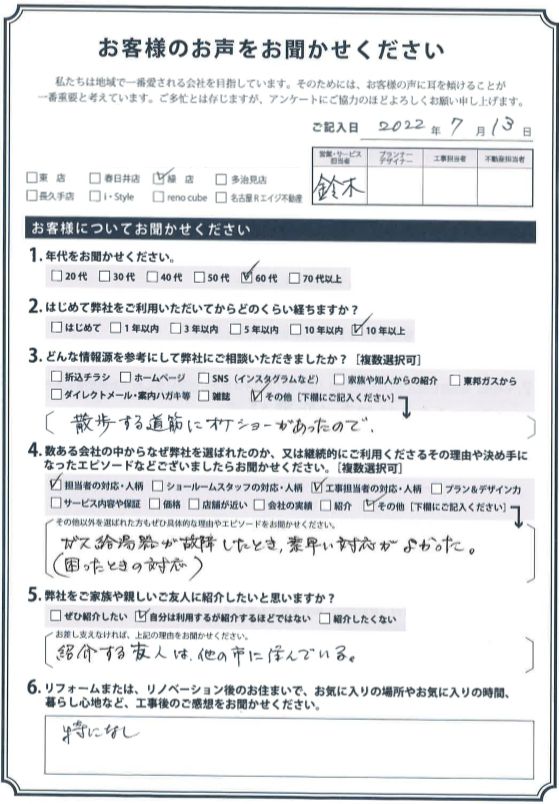 お客様のお声をお聞かせください
私たちは地域で一番愛される会社を目指しています。そのためには、お客様の声に耳を傾けることが
一番重要と考えています。ご多忙とは存じますが、アンケートにご協力のほどよろしくお願い申し上げます。
ご記入日 2022年 7月 13日
営業・サービス担当者 プランナーデザイナー 工事担当者 不動産担当者
鈴木
□東 店 □春日井店 ☑緑 店 □多治見店
□長久手店 □i・Style □reno cube □名古屋Rエイジ不動産
お客様についてお聞かせください
1. 年代をお聞かせください。
□20代 □30代 □40代 □50代 ☑60代 □70代以上
2. はじめて弊社をご利用いただいてからどのくらい経ちますか？
□はじめて □1年以内 □3年以内 □5年以内 □10年以内 ☑10年以上
3. どんな情報源を参考にして弊社にご相談いただきましたか？［複数選択可］
□折込チラシ □ホームページ □SNS（インスタグラムなど） □家族や知人からの紹介 □東邦ガスから
□ダイレクトメール・案内ハガキ等 □雑誌 ☑その他［下欄にご記入ください］
散歩する道筋にオケショーがあったので、
4. 数ある会社の中からなぜ弊社を選ばれたのか、又は継続的にご利用くださるその理由や決め手に
なったエピソードなどございましたらお聞かせください。［複数選択可］
☑担当者の対応・人柄 □ショールームスタッフの対応・人柄 ☑工事担当者の対応・人柄 □プラン&デザイン力
□サービス内容や保証 □価格 □店舗が近い □会社の実績 □紹介 ☑その他［下欄にご記入ください］
その他以外を選ばれた方もぜひ具体的な理由やエピソードをお聞かせください。
ガス給湯器が故障したとき、素早い対応がよかった。
（困ったときの対応）
5. 弊社をご家族や親しいご友人に紹介したいと思いますか？
□ぜひ紹介したい ☑自分は利用するが紹介するほどではない □紹介したくない
お差し支えなければ、上記の理由をお聞かせください。
紹介する友人は、他の市に住んでいる。
6. リフォームまたは、リノベーション後のお住まいで、お気に入りの場所やお気に入りの時間、
暮らし心地など、工事後のご感想をお聞かせください。
特になし